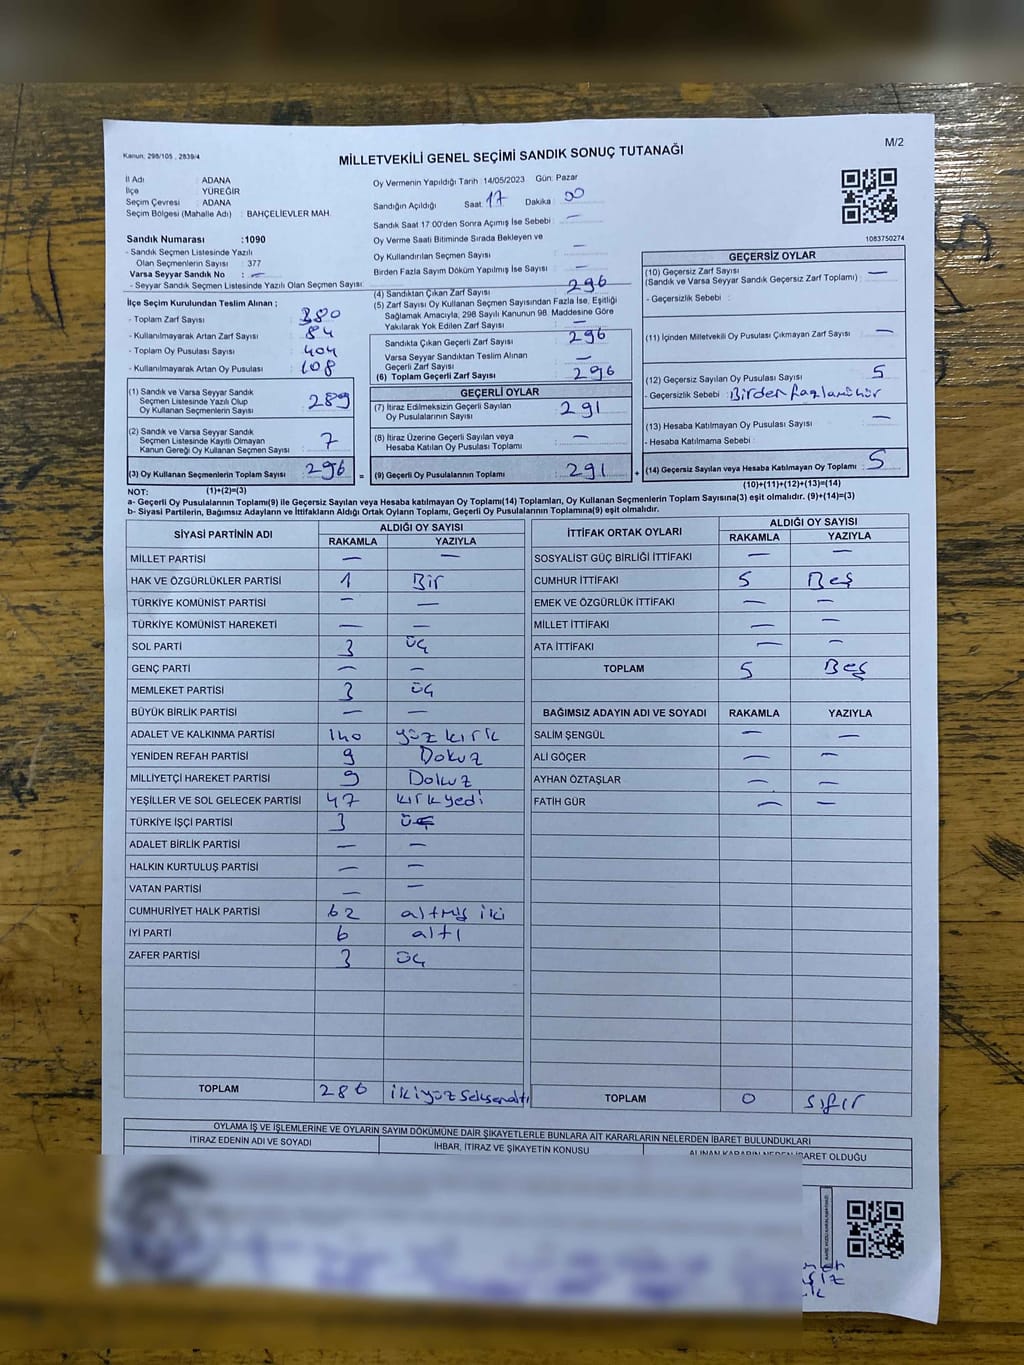 M/2
Kanun: 298/105 , 2839/4
MİLLETVEKİLİ GENEL SEÇİMİ SANDIK SONUÇ TUTANAĞI
İl Adı : ADANA
İlçe : YÜREĞİR
Seçim Çevresi : ADANA
Seçim Bölgesi (Mahalle Adı) : BAHÇELİEVLER MAH.
Sandık Numarası :1090
- Sandık Seçmen Listesinde Yazılı
Olan Seçmenlerin Sayısı : 377
Varsa Seyyar Sandık No : —
- Seyyar Sandık Seçmen Listesinde Yazılı Olan Seçmen Sayısı:
İlçe Seçim Kurulundan Teslim Alınan ;
- Toplam Zarf Sayısı : 380
- Kullanılmayarak Artan Zarf Sayısı : 84
- Toplam Oy Pusulası Sayısı : 404
- Kullanılmayarak Artan Oy Pusulası : 108
(1) Sandık ve Varsa Seyyar Sandık
Seçmen Listesinde Yazılı Olup
Oy Kullanan Seçmenlerin Sayısı : 289
(2) Sandık ve Varsa Seyyar Sandık
Seçmen Listesinde Kayıtlı Olmayan
Kanun Gereği Oy Kullanan Seçmen Sayısı : 7
(3) Oy Kullanan Seçmenlerin Toplam Sayısı : 296 =
(1)+(2)=(3)
Oy Vermenin Yapıldığı Tarih :14/05/2023 Gün: Pazar
Sandığın Açıldığı Saat: 17 Dakika : 00
Sandık Saat 17:00'den Sonra Açımış İse Sebebi : —
Oy Verme Saati Bitiminde Sırada Bekleyen ve
Oy Kullandırılan Seçmen Sayısı : —
Birden Fazla Sayım Döküm Yapılmış İse Sayısı : —
(4) Sandıktan Çıkan Zarf Sayısı : 296
(5) Zarf Sayısı Oy Kullanan Seçmen Sayısından Fazla İse, Eşitliği
Sağlamak Amacıyla, 298 Sayılı Kanunun 98. Maddesine Göre
Yakılarak Yok Edilen Zarf Sayısı : —
Sandıkta Çıkan Geçerli Zarf Sayısı : 296
Varsa Seyyar Sandıktan Teslim Alınan
Geçerli Zarf Sayısı : —
(6) Toplam Geçerli Zarf Sayısı : 296
GEÇERLİ OYLAR
(7) İtiraz Edilmeksizin Geçerli Sayılan
Oy Pusulalarının Sayısı : 291
(8) İtiraz Üzerine Geçerli Sayılan veya
Hesaba Katılan Oy Pusulası Toplamı : —
(9) Geçerli Oy Pusulalarının Toplamı : 291 +
1083750274
GEÇERSİZ OYLAR
(10) Geçersiz Zarf Sayısı : —
(Sandık ve Varsa Seyyar Sandık Geçersiz Zarf Toplamı)
- Geçersizlik Sebebi :
(11) İçinden Milletvekili Oy Pusulası Çıkmayan Zarf Sayısı : —
(12) Geçersiz Sayılan Oy Pusulası Sayısı : 5
- Geçersizlik Sebebi : Birden fazla mühür
(13) Hesaba Katılmayan Oy Pusulası Sayısı : —
- Hesaba Katılmama Sebebi :
(14) Geçersiz Sayılan veya Hesaba Katılmayan Oy Toplamı : 5
(10)+(11)+(12)+(13)=(14)
NOT:
a- Geçerli Oy Pusulalarının Toplamı(9) ile Geçersiz Sayılan veya Hesaba katılmayan Oy Toplamı(14) Toplamları, Oy Kullanan Seçmenlerin Toplam Sayısına(3) eşit olmalıdır. (9)+(14)=(3)
b- Siyasi Partilerin, Bağımsız Adayların ve İttifakların Aldığı Ortak Oyların Toplamı, Geçerli Oy Pusulalarının Toplamına(9) eşit olmalıdır.
SİYASİ PARTİNİN ADI ALDIĞI OY SAYISI
RAKAMLA YAZIYLA
MİLLET PARTİSİ — —
HAK VE ÖZGÜRLÜKLER PARTİSİ 1 Bir
TÜRKİYE KOMÜNİST PARTİSİ — —
TÜRKİYE KOMÜNİST HAREKETİ — —
SOL PARTİ 3 üç
GENÇ PARTİ — —
MEMLEKET PARTİSİ 3 üç
BÜYÜK BİRLİK PARTİSİ — —
ADALET VE KALKINMA PARTİSİ 140 yüz kırk
YENİDEN REFAH PARTİSİ 9 Dokuz
MİLLİYETÇİ HAREKET PARTİSİ 9 Dokuz
YEŞİLLER VE SOL GELECEK PARTİSİ 47 kırkyedi
TÜRKİYE İŞÇİ PARTİSİ 3 üç
ADALET BİRLİK PARTİSİ — —
HALKIN KURTULUŞ PARTİSİ — —
VATAN PARTİSİ — —
CUMHURİYET HALK PARTİSİ 62 altmış iki
İYİ PARTİ 6 altı
ZAFER PARTİSİ 3 üç
TOPLAM 286 ikiyüz seksenaltı
İTTİFAK ORTAK OYLARI ALDIĞI OY SAYISI
RAKAMLA YAZIYLA
SOSYALİST GÜÇ BİRLİĞİ İTTİFAKI — —
CUMHUR İTTİFAKI 5 Beş
EMEK VE ÖZGÜRLÜK İTTİFAKI — —
MİLLET İTTİFAKI — —
ATA İTTİFAKI — —
TOPLAM 5 Beş
BAĞIMSIZ ADAYIN ADI VE SOYADI RAKAMLA YAZIYLA
SALİM ŞENGÜL — —
ALİ GÖÇER — —
AYHAN ÖZTAŞLAR — —
FATİH GÜR — —
TOPLAM 0 sıfır
OYLAMA İŞ VE İŞLEMLERİNE VE OYLARIN SAYIM DÖKÜMÜNE DAİR ŞİKAYETLERLE BUNLARA AİT KARARLARIN NELERDEN İBARET BULUNDUKLARI
İTİRAZ EDENİN ADI VE SOYADI İHBAR, İTİRAZ VE ŞİKAYETİN KONUSU ALINAN KARARIN NEDEN İBARET OLDUĞU